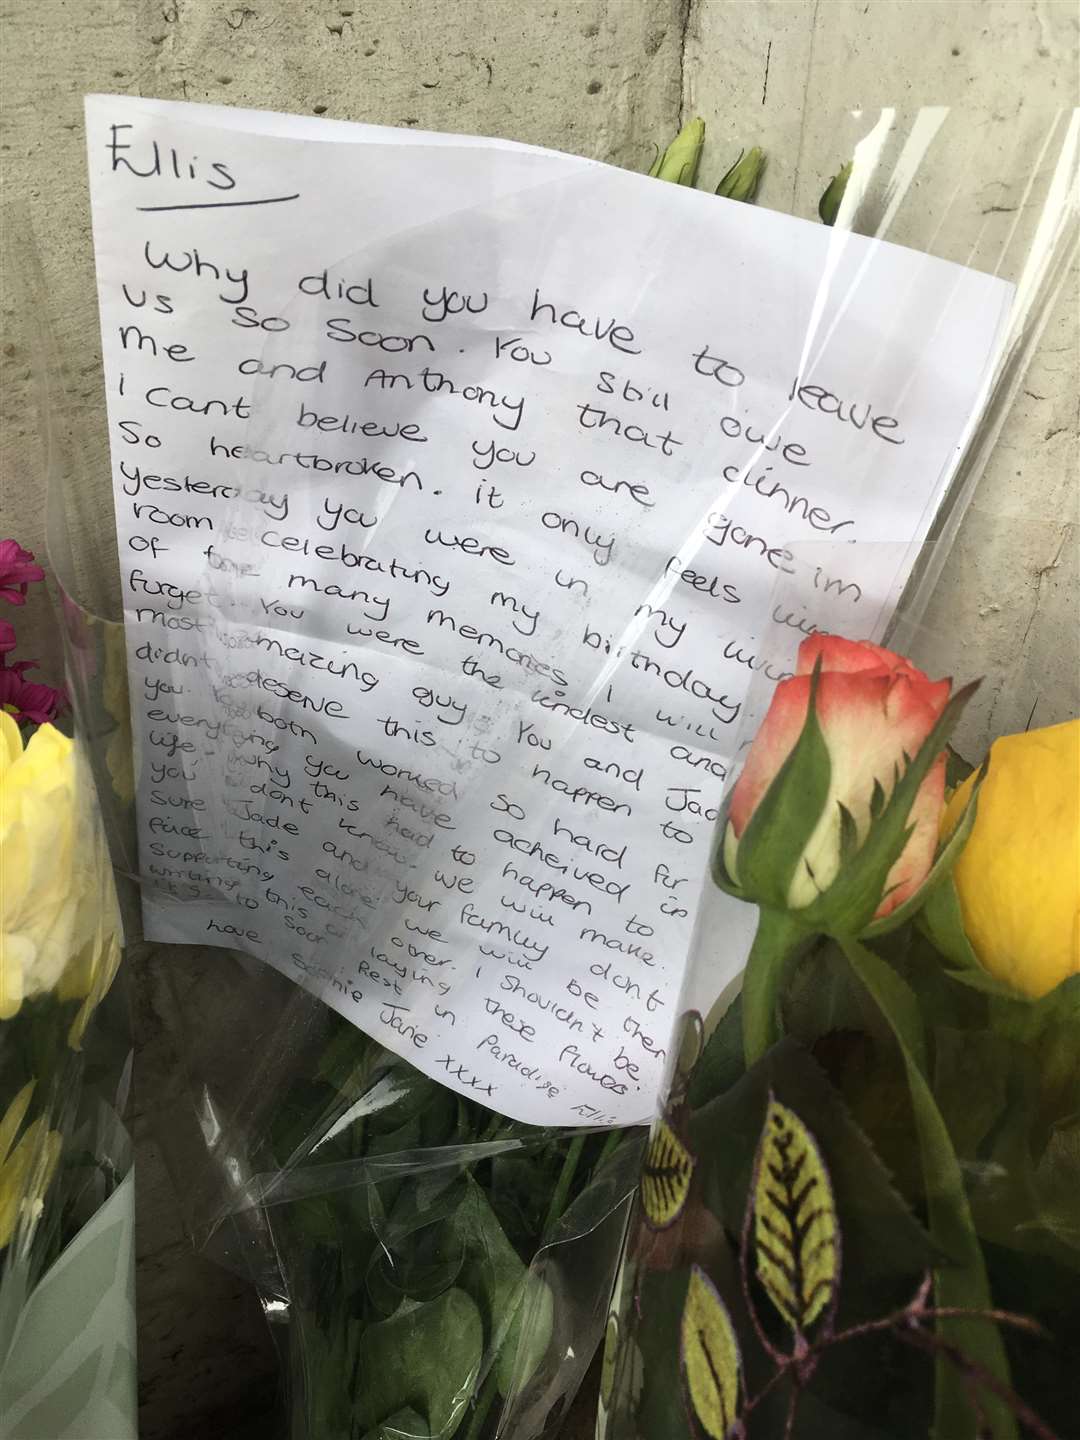 Ellis
Why did you have to leave
us so soon. You still owe
me and Anthony that dinner.
I cant believe you are gone im
so heartbroken. it only feels
yesterday you were in my
room celebrating my birthday
of many memories I will
furget. You were the kindest and
most amazing guy. You and Jad
didnt deserve this to happen to
you. both worked so hard fur
everything you have acheived in
life. why this had to happen to
you dont know. We will make
sure Jade and your family dont
face this alone we will be ther
supporting each other. I shouldn't be
writing this or laying these flowers.
to soon Rest in Paradise Ellis
Love Sophie Jane xxxx